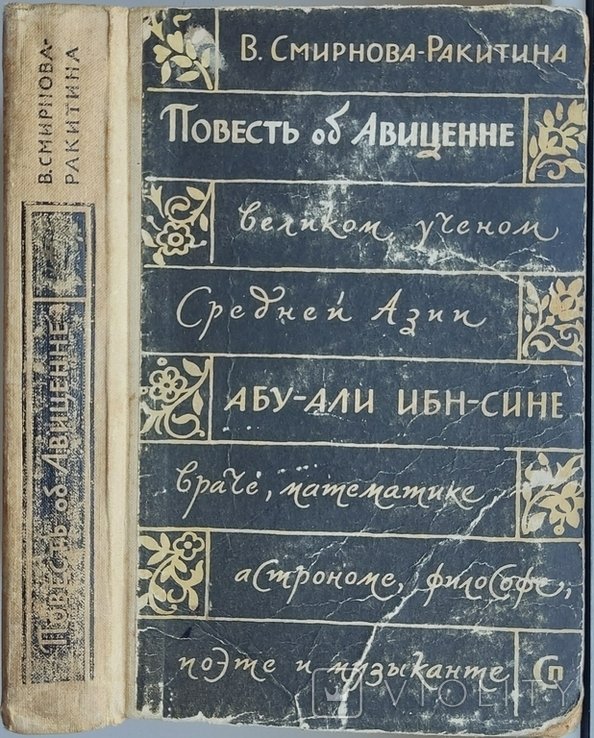 В. СМИРНОВА-РАКИТИНА
ПОВЕСТЬ об АВИЦЕННЕ
великом ученом
Средней Азии
АБУ-АЛИ ИБН-СИНЕ
враче, математике
астрономе, философе,
поэте и музыканте
Сп
В. СМИРНОВА-
РАКИТИНА
ПОВЕСТЬ об АВИЦЕННЕ
VIOLITY